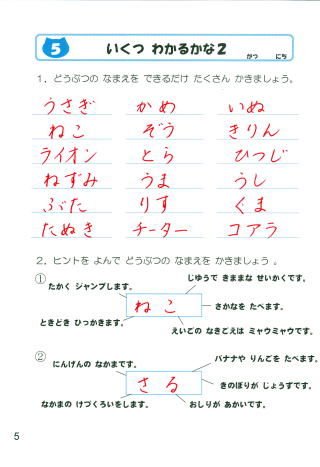 5 いくつ わかるかな2 がつ にち
1．どうぶつの なまえを できるだけ たくさん かきましょう。
うさぎ かめ いぬ
ねこ ぞう きりん
ライオン とら ひつじ
ねずみ うま うし
ぶた りす くま
たぬき チーター コアラ
2．ヒントを よんで どうぶつの なまえを かきましょう 。
① じゆうで きままな せいかくです。
たかく ジャンプします。
ねこ
さかなを たべます。
ときどき ひっかきます。
えいごの なきごえは ミャウミャウです。
② バナナや りんごを たべます。
にんげんの なかまです。
さる
きのぼりが じょうずです。
なかまの けづくろいをします。 おしりが あかいです。
5